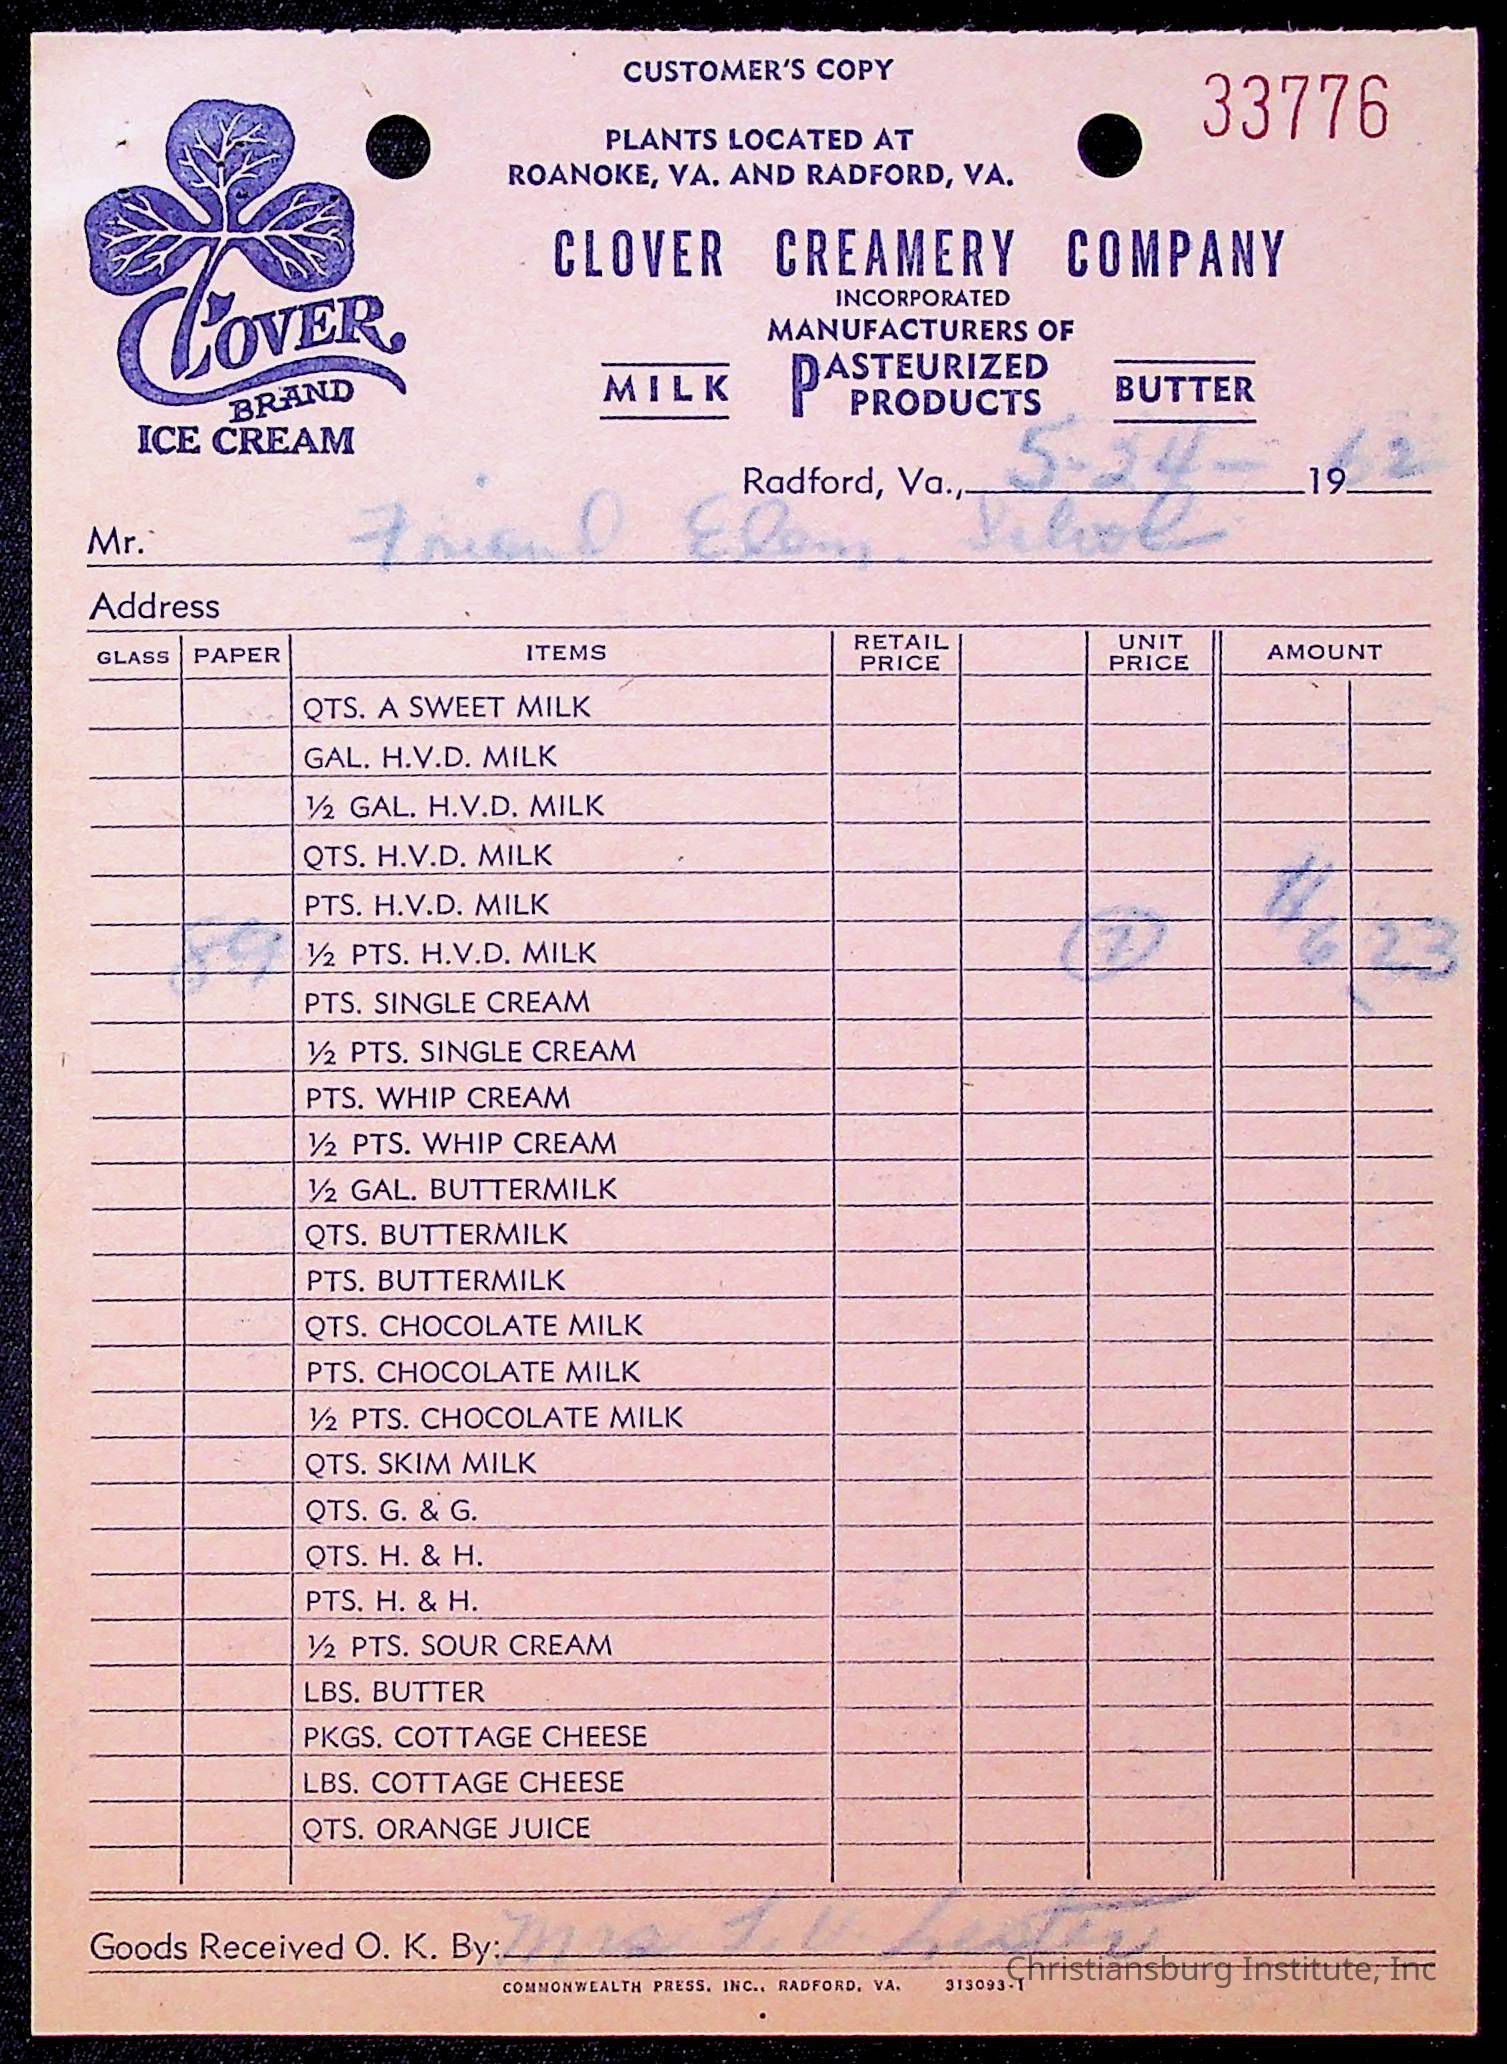 CUSTOMER'S COPY
33776
PLANTS LOCATED AT
ROANOKE, VA. AND RADFORD, VA.
CLOVER CREAMERY COMPANY
INCORPORATED
MANUFACTURERS OF
MILK PASTEURIZED PRODUCTS BUTTER
CLOVER
BRAND
ICE CREAM
Radford, Va., 5-24- 1962
Mr. Friend Elem. School
Address
GLASS PAPER ITEMS RETAIL PRICE UNIT PRICE AMOUNT
QTS. A SWEET MILK
GAL. H.V.D. MILK
½ GAL. H.V.D. MILK
QTS. H.V.D. MILK
PTS. H.V.D. MILK
89 ½ PTS. H.V.D. MILK 7 $6.23
PTS. SINGLE CREAM
½ PTS. SINGLE CREAM
PTS. WHIP CREAM
½ PTS. WHIP CREAM
½ GAL. BUTTERMILK
QTS. BUTTERMILK
PTS. BUTTERMILK
QTS. CHOCOLATE MILK
PTS. CHOCOLATE MILK
½ PTS. CHOCOLATE MILK
QTS. SKIM MILK
QTS. G. & G.
QTS. H. & H.
PTS. H. & H.
½ PTS. SOUR CREAM
LBS. BUTTER
PKGS. COTTAGE CHEESE
LBS. COTTAGE CHEESE
QTS. ORANGE JUICE
Goods Received O. K. By: Mrs Lester
Christiansburg Institute, Inc
COMMONWEALTH PRESS, INC., RADFORD, VA. 313093-1